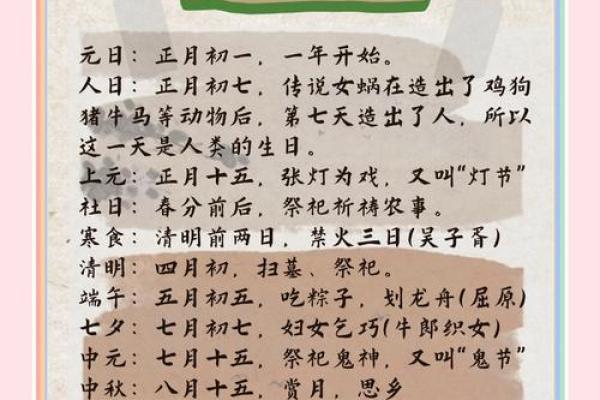 元日：正月初一，一年开始。
人日：正月初七，传说女娲在造出了鸡狗
猪牛马等动物后，第七天造出了人，所以
这一天是人类的生日。
上元：正月十五，张灯为戏，又叫“灯节”
社日：春分前后，祭祀祈祷农事。
寒食：清明前两日，禁火三日(吴子胥)
清明：四月初，扫墓、祭祀。
端午：五月初五，吃粽子，划龙舟(屈原)
七夕：七月初七，妇女乞巧(牛郎织女)
中元：七月十五，祭祀鬼神，又叫“鬼节”
中秋：八月十五，赏月，思乡